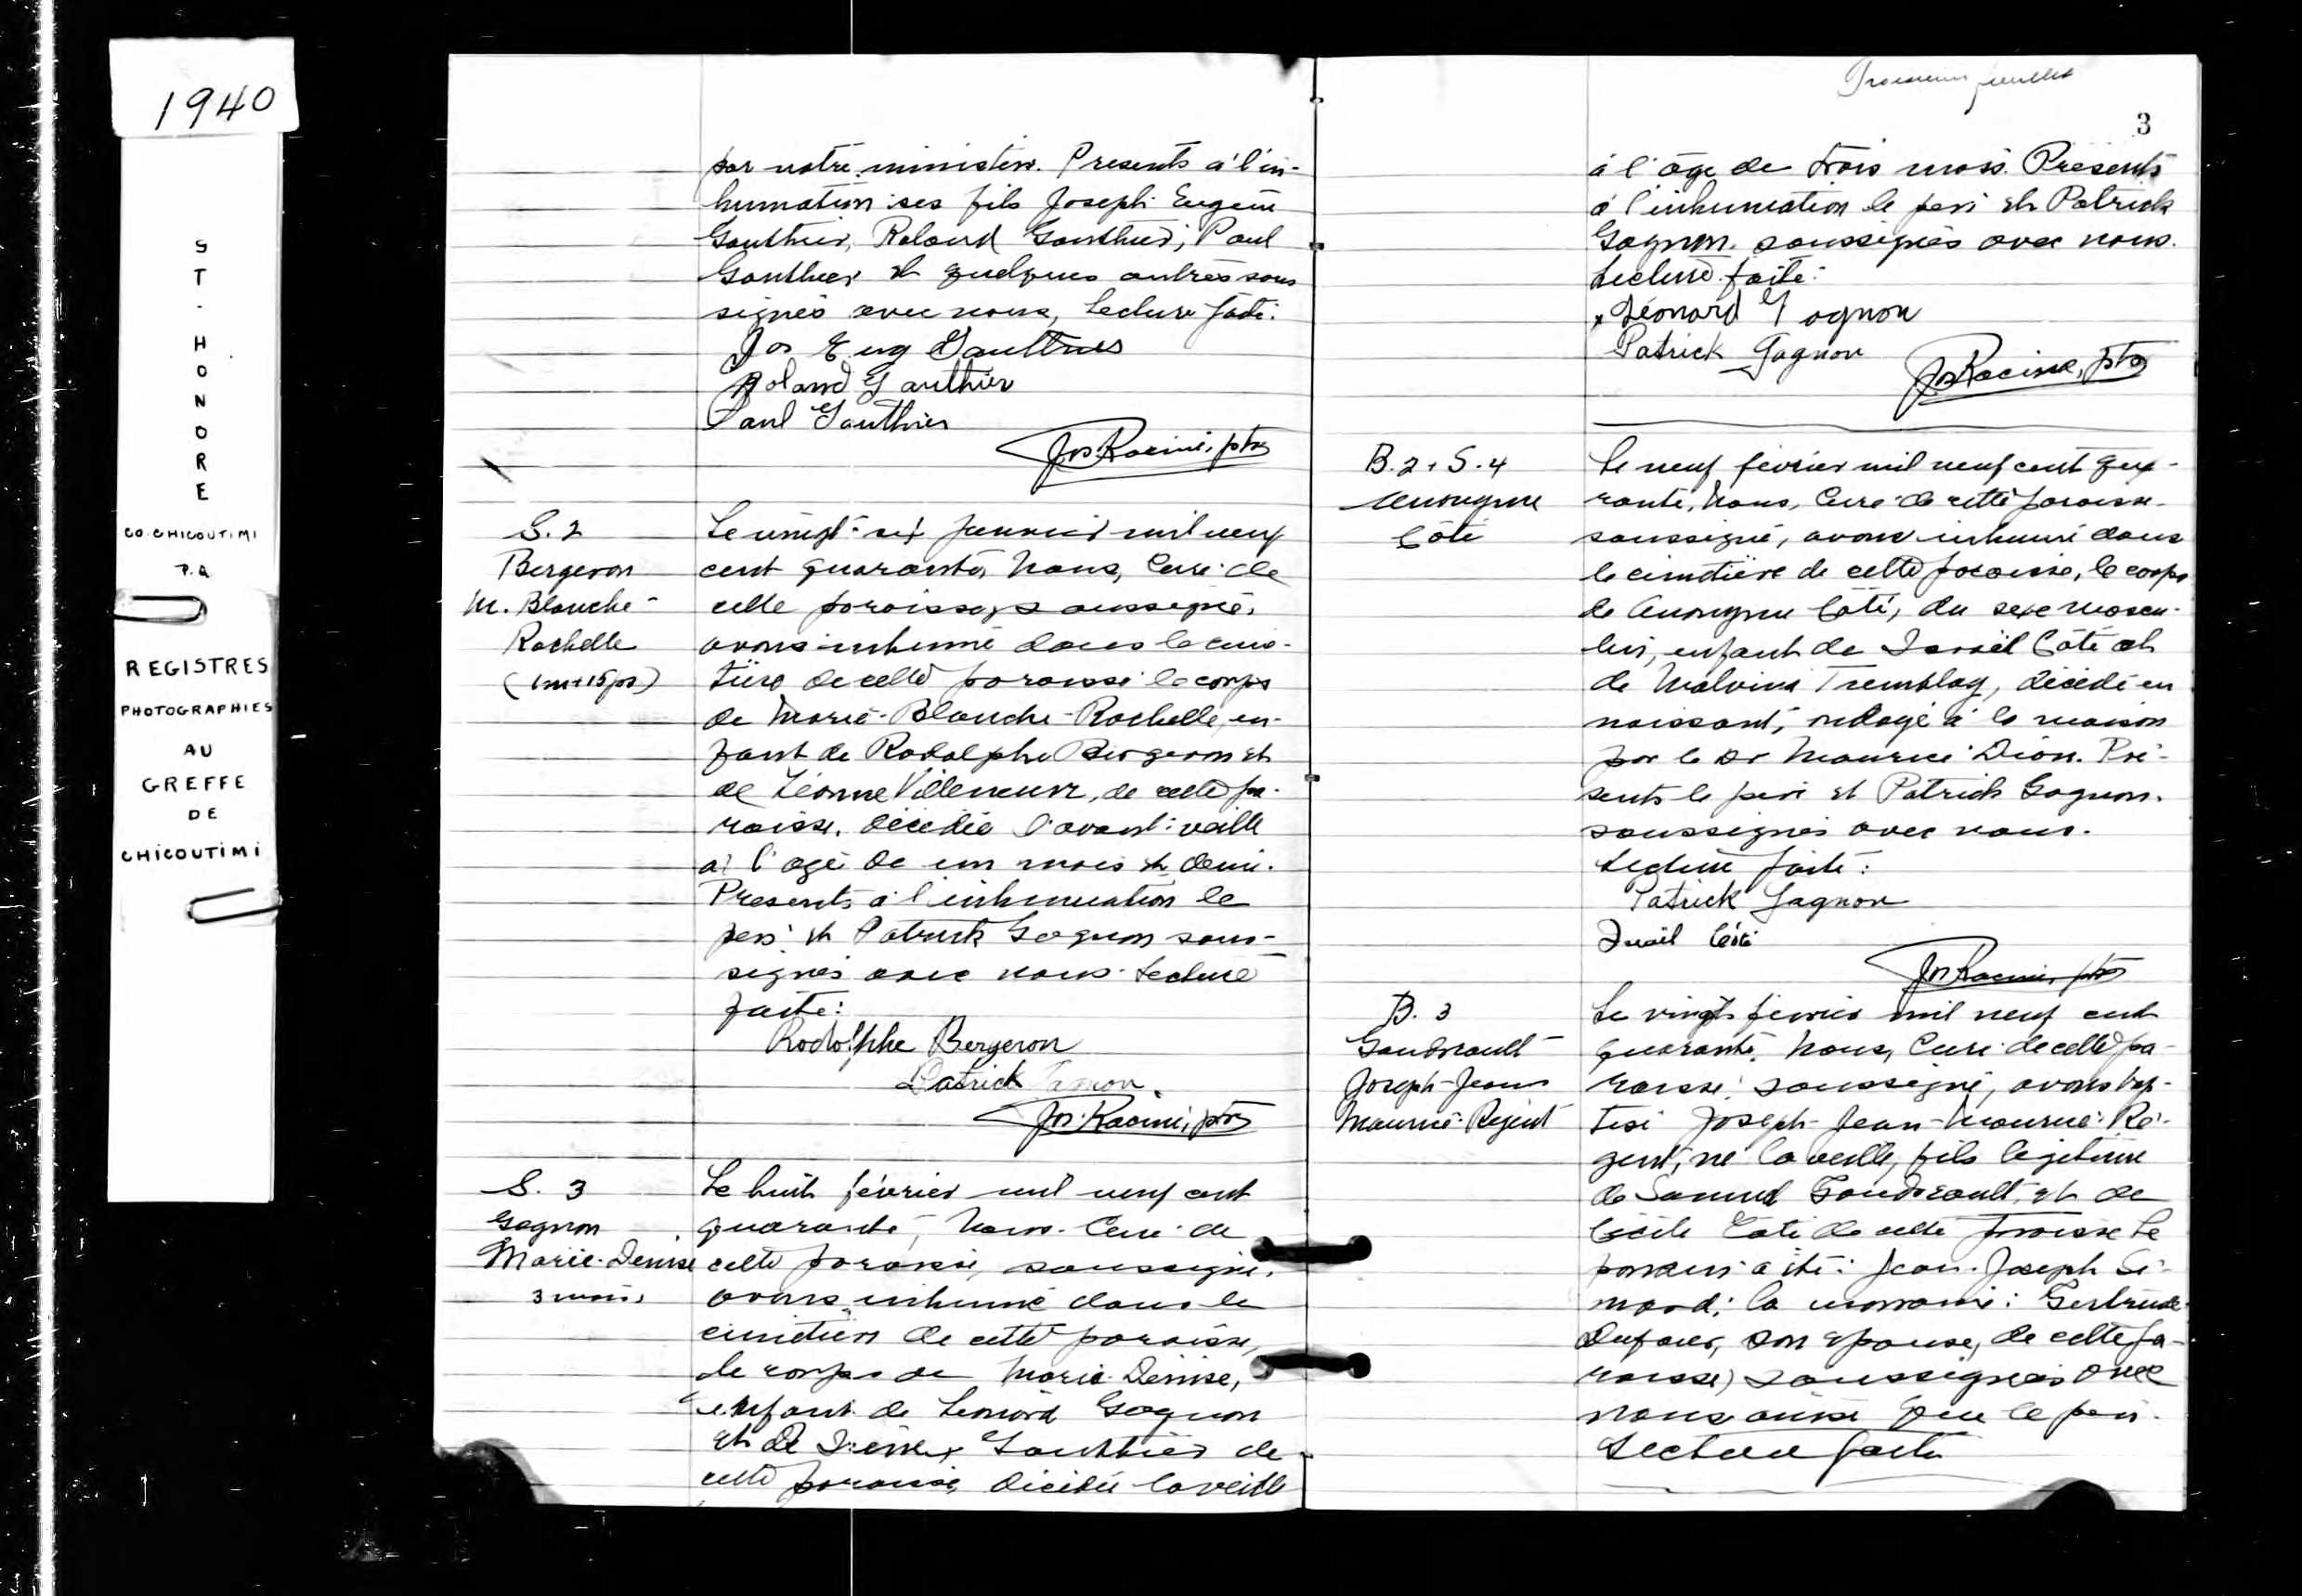 1940
ST-HONORE
CO. CHICOUTIMI
P.Q
REGISTRES
PHOTOGRAPHIES
AU
GREFFE
DE
CHICOUTIMI
par notre ministère. Presents à l'in-
humation ses fils Joseph Eugène
Gauthier, Roland Gauthier, Paul
Gauthier et quelques autres sous
signés avec nous, Lecture faite:
Jos Eug Gauthier
Roland Gauthier
Paul Gauthier
Jos. Racine, ptre
S. 2
Bergeron
M. Blanche-
Rachelle
(1m+15 jrs)
Le vingt-six janvier mil neuf
cent quarante, Nous, Curé de
cette paroisse, soussigné,
avons inhumé dans le cime-
tière de cette paroisse le corps
de Marie-Blanche-Rachelle, en-
fant de Rodolphe Bergeron et
de Léonne Villeneuve, de cette pa-
roisse, décédée l'avant-veille
à l'age de un mois et demi.
Presents à l'inhumation le
père et Patrick Gagnon sous-
signés avec nous. Lecture
faite:
Rodolphe Bergeron
Patrick Gagnon
Jos. Racine, ptre
S. 3
Gagnon
Marie-Denise
3 mois
Le huit février mil neuf cent
quarante, Nous. Curé de
cette paroisse, soussigné,
avons inhumé dans le
cimetière de cette paroisse,
le corps de Marie-Denise,
enfant de Léonard Gagnon
et de Gauthier de
cette paroisse, décédée la veille
Troisième feuillet
3
à l'âge de trois mois. Présents
à l'inhumation le père et Patrick
Gagnon soussignés avec nous.
Lecture faite:
Léonard Gagnon
Patrick Gagnon
Jos Racine, ptre
B. 2 + S. 4
Anonyme
Côté
Le neuf février mil neuf cent qua-
rante, Nous, Curé de cette paroisse
soussigné, avons inhumé dans
le cimetière de cette paroisse, le corps
de Anonyme Côté, du sexe mascu-
lin, enfant de Israël Côté et
de Malvina Tremblay, décédé en
naissant, ondoyé à la maison
par le Dr Maurice Dion. Pré-
sents le père et Patrick Gagnon.
soussignés avec nous.
Lecture faite:
Patrick Gagnon
Israël Côté
Jos Racine, ptre
B. 3
Gaudreault
Joseph-Jean
Maurice-Régent
Le vingt février mil neuf cent
quarante, Nous, Curé de cette pa-
roisse, soussigné, avons bap-
tisé Joseph-Jean-Maurice-Ré-
gent, né la veille, fils légitime
de Samuel Gaudreault, et de
Cécile Côté de cette paroisse Le
parrain a été: Jean-Joseph Si-
mard; la marraine: Gertrude
Dufour, son épouse, de cette pa-
roisse, soussignés avec
nous ainsi que le père.
Lecture faite